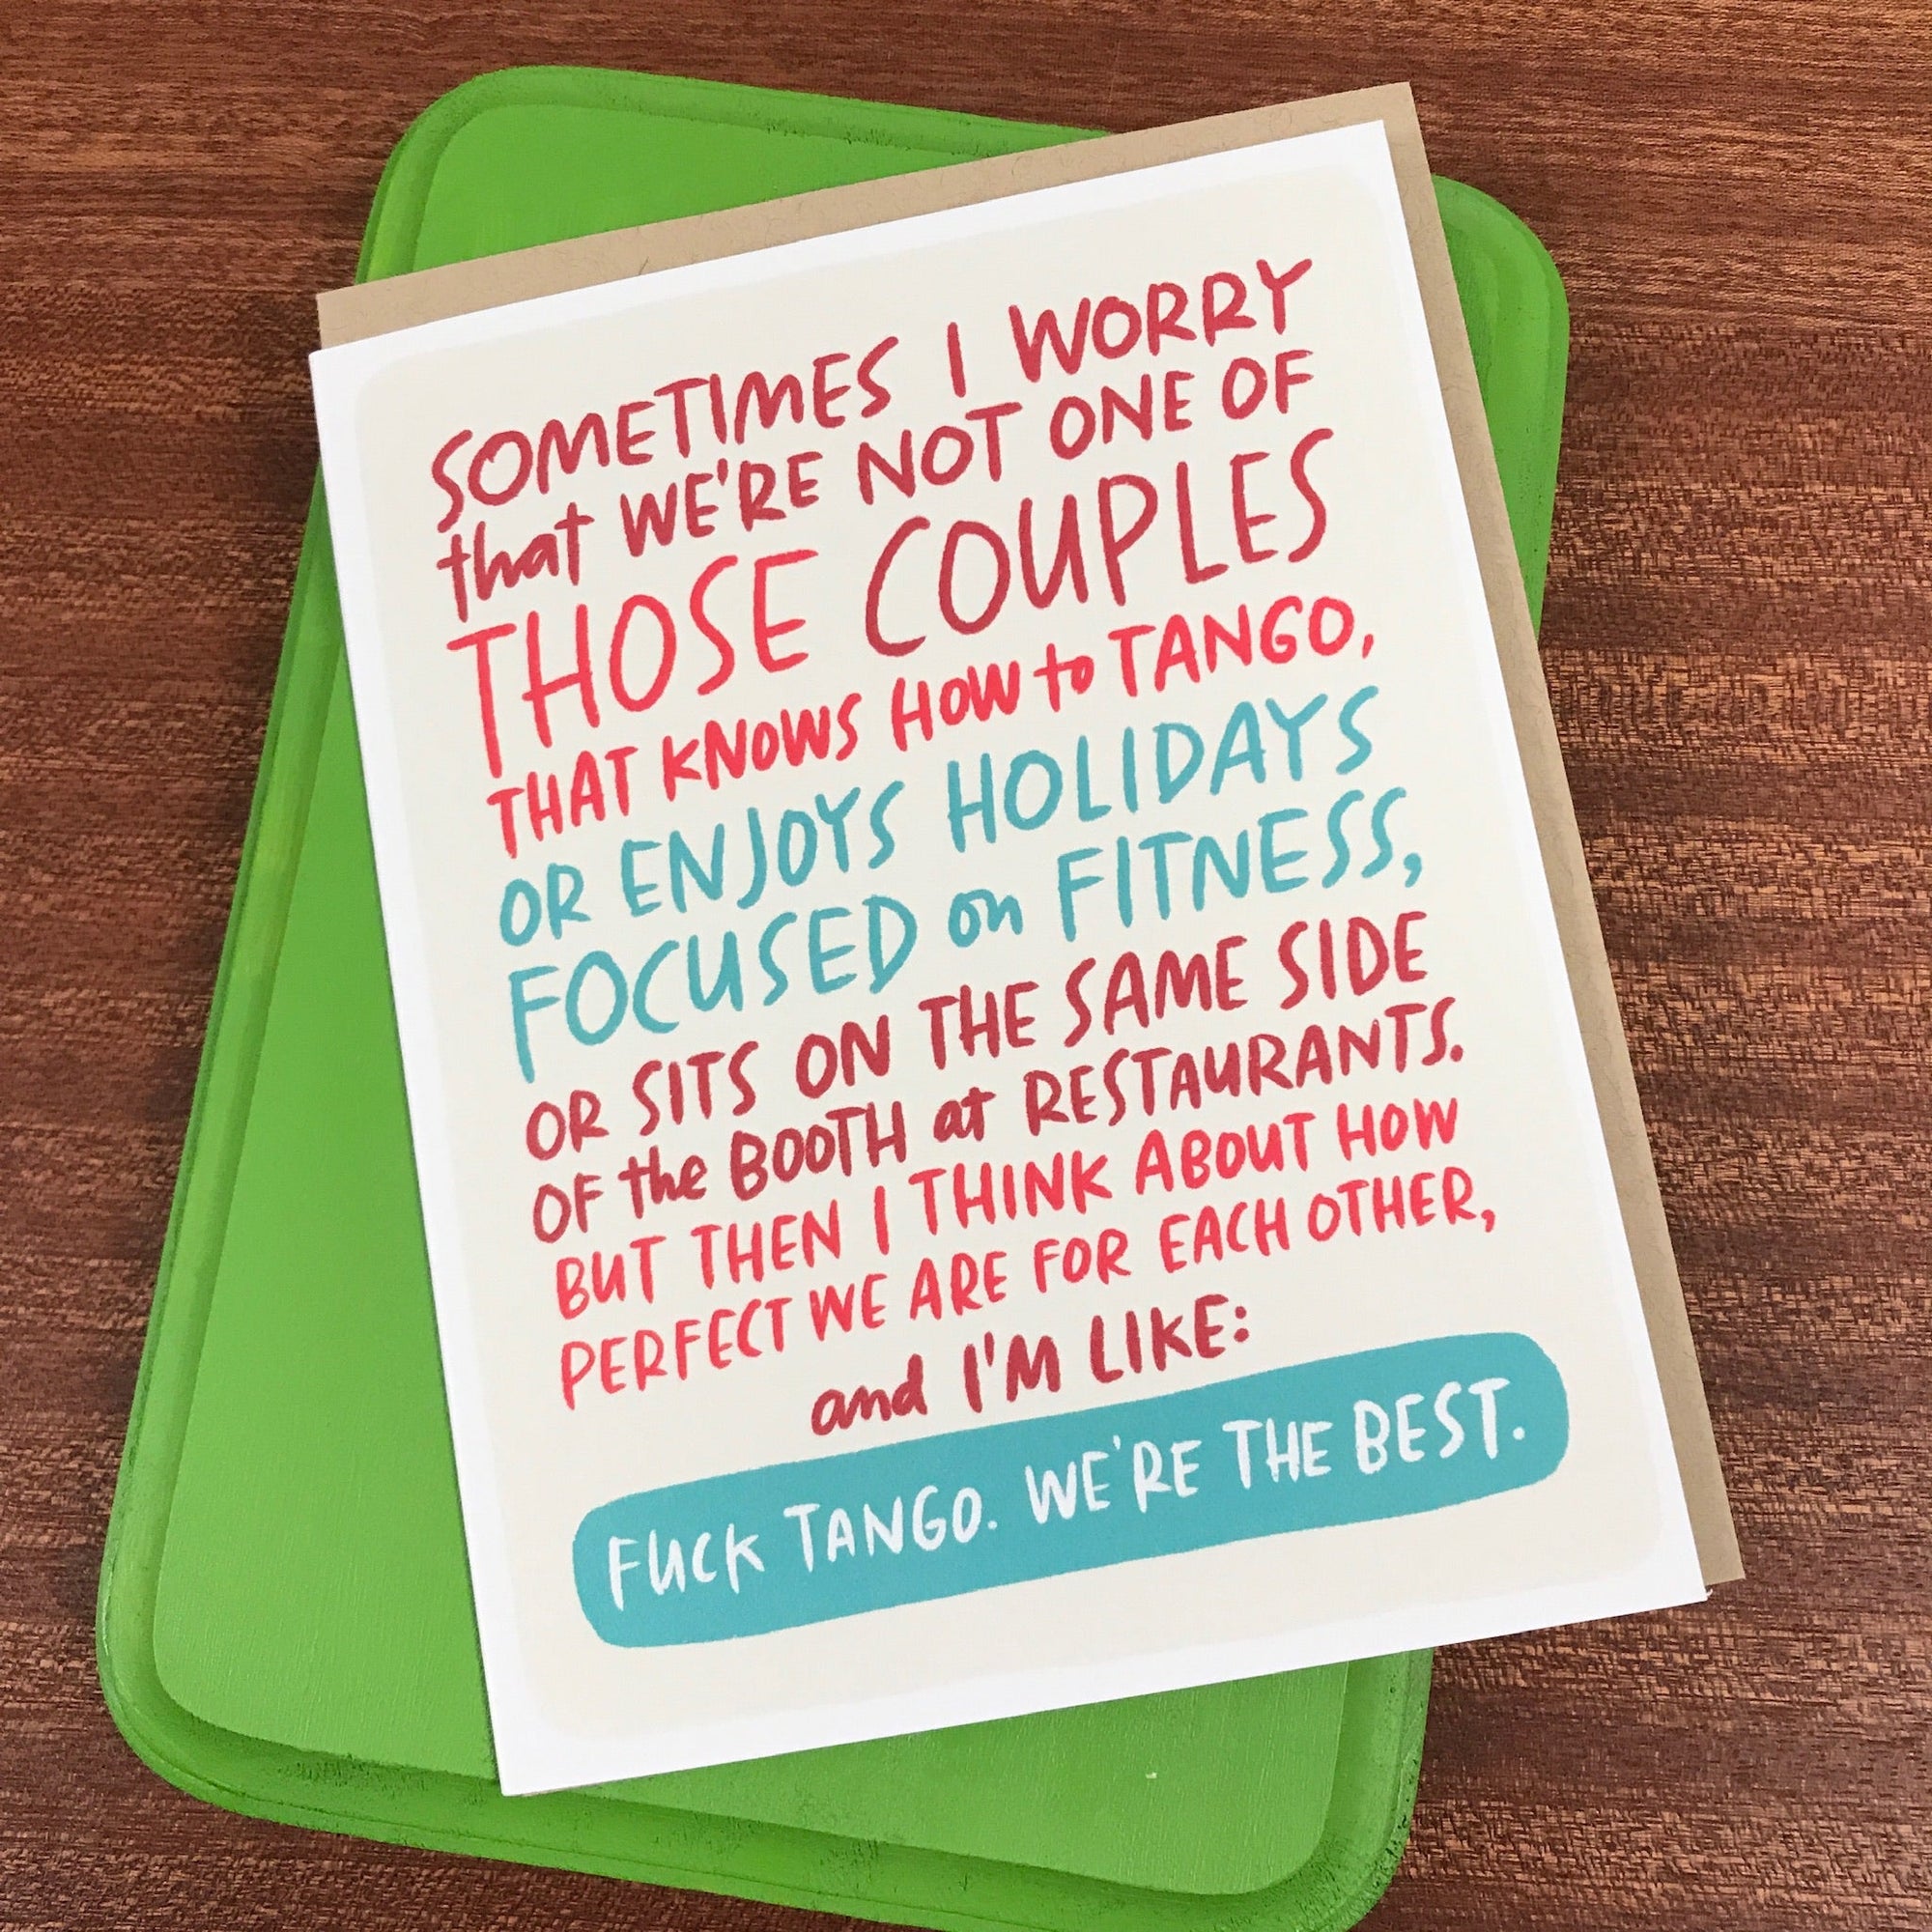 SOMETIMES I WORRY
that WE'RE NOT ONE OF
THOSE COUPLES
THAT KNOWS HOW to TANGO,
OR ENJOYS HOLIDAYS
FOCUSED on FITNESS,
OR SITS ON THE SAME SIDE
OF the BOOTH at RESTAURANTS.
BUT THEN I THINK ABOUT HOW
PERFECT WE ARE FOR EACH OTHER,
and I'M LIKE:
FUCK TANGO. WE'RE THE BEST.